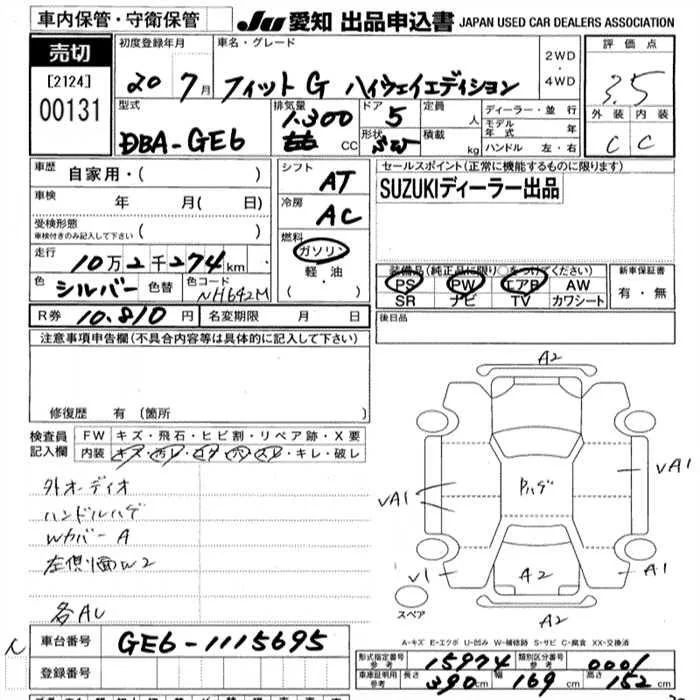 車内保管・守衛保管
JU 愛知 出品申込書 JAPAN USED CAR DEALERS ASSOCIATION
売切
[2124]
00131
初度登録年月
20 7月
車名・グレード
フィット G ハイウェイエディション
2WD
・
4WD
評価点
3.5
外装 内装
C C
型式
DBA-GE6
排気量
1.300
CC
ドア
5
形状
SW
定員
人
積載
kg
ディーラー・並行
モデル年式 年
ハンドル 左・右
車歴
自家用・( )
車検
年 月( 日)
受検形態
車検付きのみ記入して下さい ( )
走行
10万2千274km
色
シルバー
色替
色コード
NH642M
シフト
AT
冷房
AC
燃料
ガソリン
軽油
( ・ )
セールスポイント(正常に機能するものに限ります)
SUZUKIディーラー出品
装備品(純正品に限り○をつけてください)
PS PW エアB AW
SR ナビ TV カワシート
新車保証書
有・無
R券 10.810 円 名変期限 月 日
後日品
注意事項申告欄(不具合内容等は具体的に記入して下さい)
修復歴 有(箇所 )
検査員
記入欄
FW キズ・飛石・ヒビ割・リペア跡・X要
内装 キズ・汚レ・コゲ・穴・スレ・キレ・破レ
外オーディオ
ハンドルハゲ
Wカバー A
左側面W2
各AU
A2
VA1
VA1
Pハゲ
V1
A2
A1
A2
スペア
A-キズ E-エクボ U-凹み W-補修跡 S-サビ C-腐食 XX-交換済
車台番号 GE6-1115695
登録番号
形式指定番号
参考
15974
類別区分番号
参考
0001
車庫証明用
参考
長さ 390cm
幅 169cm
高さ 152cm